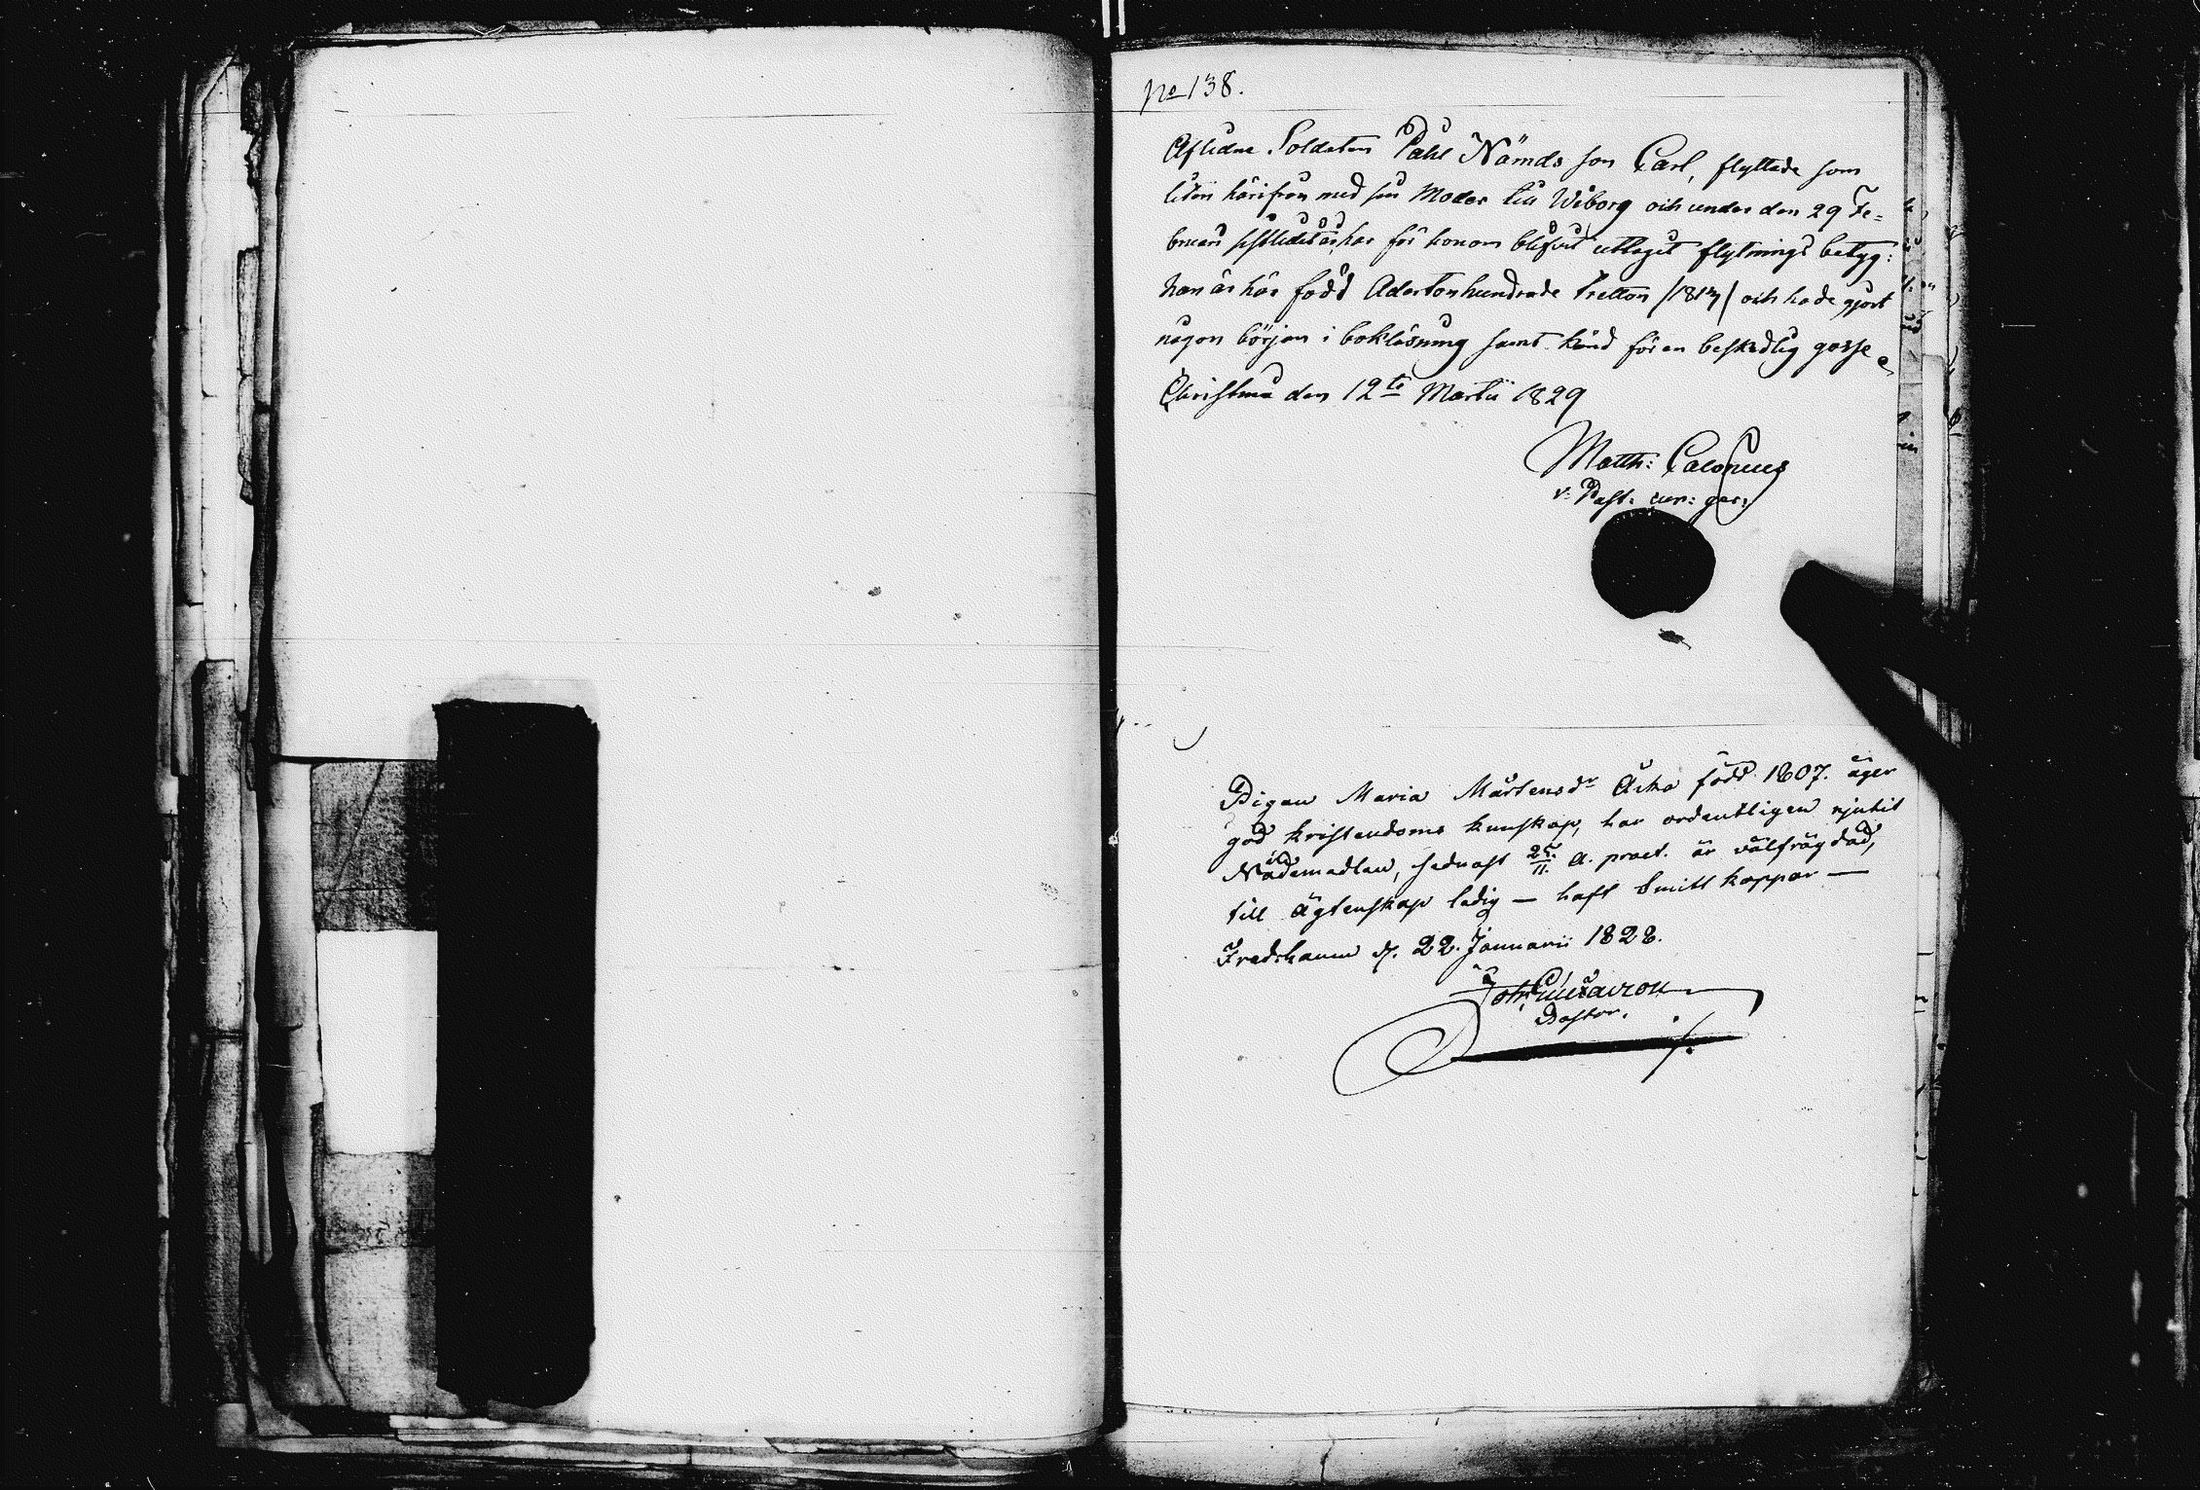 No 138.
Aflidne Soldaten Påhl Nämds son Carl, flyttade som
liten härifrån med sin Moder till Wiborg och under den 29 Fe=
bruarii sistledit år, har för honom blifvit uttaget flytnings betyg:
han är här född Adertonhundrade Tretton /1813/ och hade gjort
någon början i bokläsning samt känd för en beskedlig gosse
Christina den 12te Martii 1829
Matth: Calonius
v: Past: cur: ger:
Pigan Maria Mårtensdr född 1807. äger
god kristendoms kunskap, har ordentligen njutit
Nådemedlen, sednast 25/11. a. praet. är välfrägdad,
till ägtenskap ledig — haft Smittkoppor —
Fredrhamn d. 22. Januarii 1828.
Joh:
Pastor.